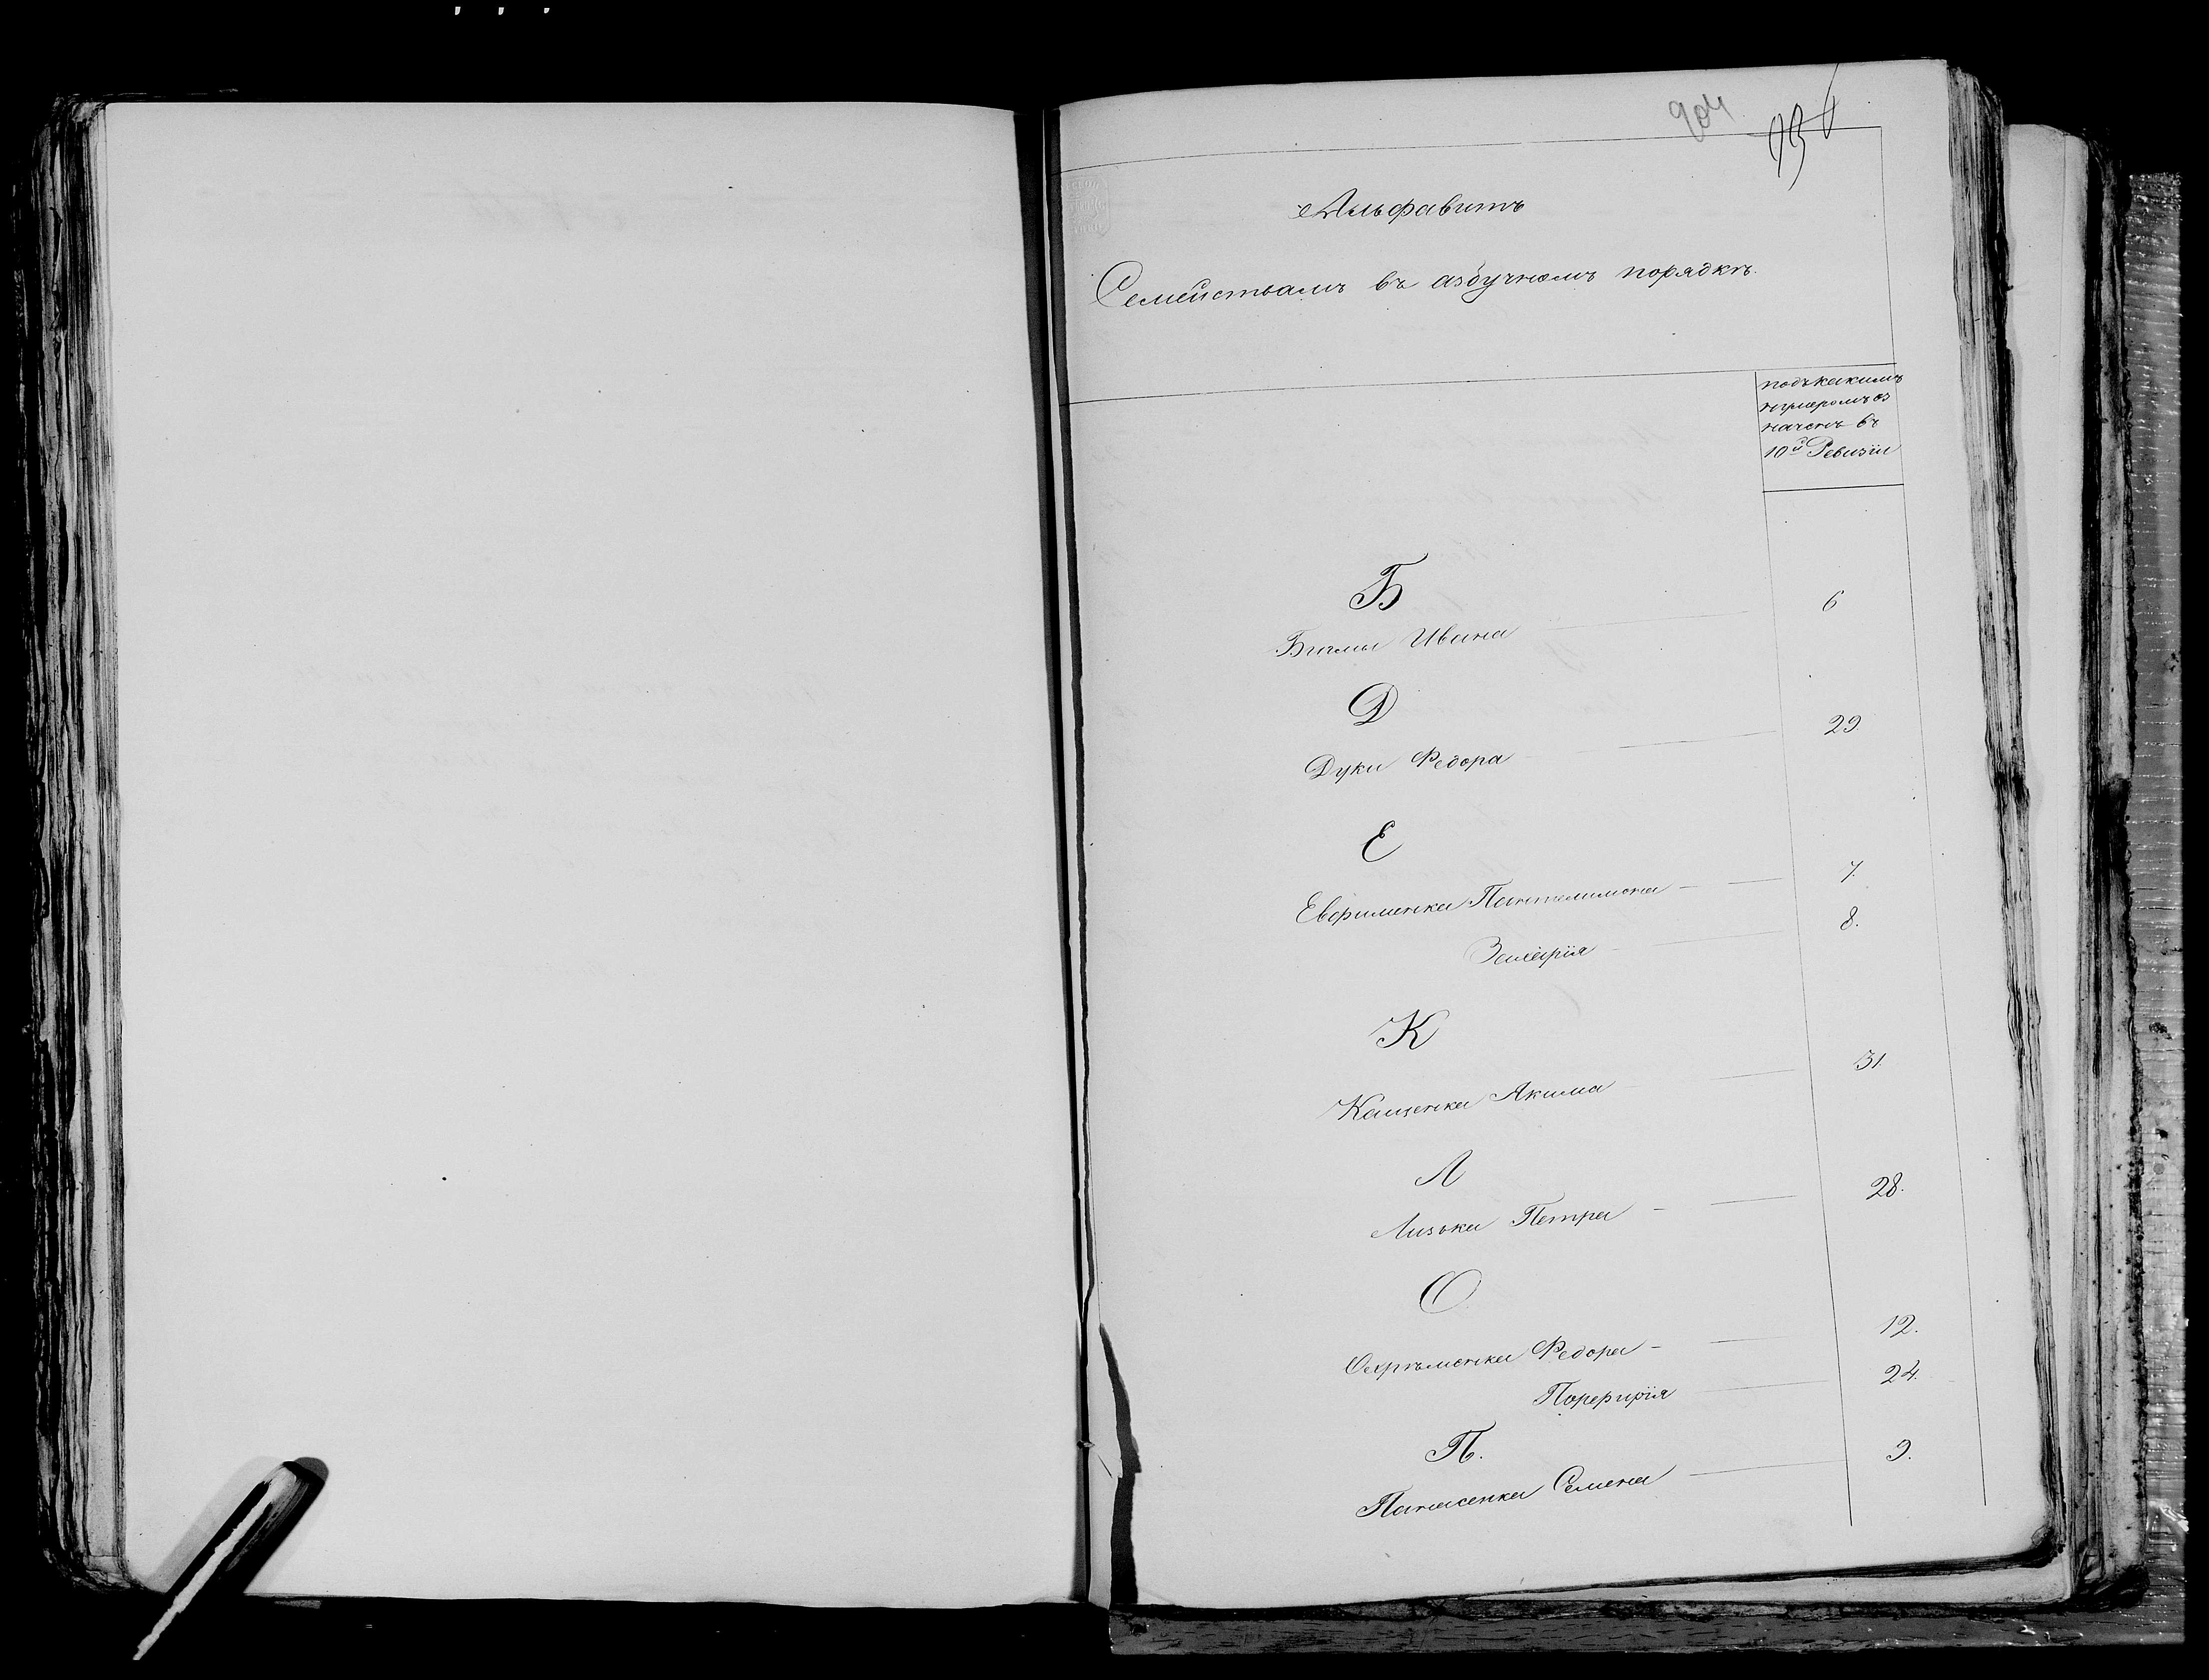 904
936
Альфавитъ
Семействамъ въ азбучномъ порядкѣ.
подъ какимъ
нумеромъ оз
наченъ въ
10й Ревизіи
Б
Бигмы Ивана 6
Д
Дуки Федора 29.
Е
Евфименка Пантелимона 7.
Захарія 8.
К
Кащенка Акима 31.
Л
Лизька Петра 28.
О
Охрѣменка Федора 12.
Порфирія 24.
П.
Панасенка Семена 9.